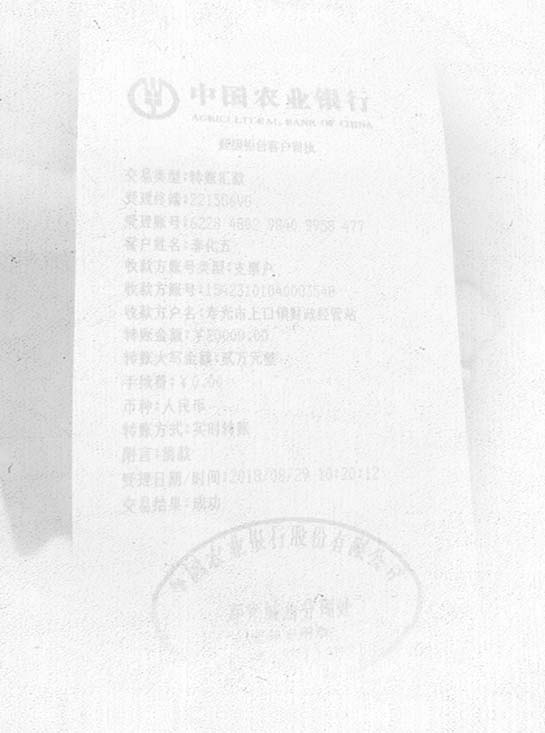 中国农业银行
AGRICULTURAL BANK OF CHINA
超级柜台客户回执
交易类型:转账汇款
受理终端:
受理账号:6228 4802 9846 9958 477
客户姓名:
收款方账号类型:支票户
收款方账号:
收款方户名:寿光市上口镇财政经管站
转账金额:¥20000.00
转账大写金额:贰万元整
手续费:¥0.00
币种:人民币
转账方式:实时转账
附言:捐款
受理日期/时间:2018/08/29 10:20:12
交易结果:成功
中国农业银行股份有限公司